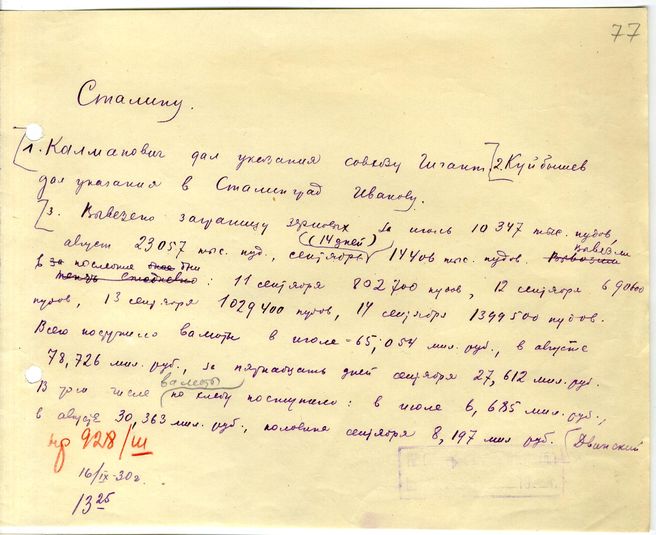 77
Сталину.
[1. Калманович дал указания совхозу Гигант] [2. Куйбышев
дал указания в Сталинград Иванову.
[3. Вывезено заграницу зерновых за июль 10 347 тыс. пудов,
август 23057 тыс. пуд., сентябрь (14 дней) 14406 тыс. пудов. Вывозили вывезли
в за последние дни теперь ежедневно: 11 сентября 802700 пудов, 12 сентября 690600
пудов, 13 сентября 1029400 пудов, 14 сентября 1399500 пудов.
Всего поступило валюты в июле - 65,054 мил. руб., в августе
78,726 мил. руб., за пятнадцать дней сентября 27,612 мил. руб.
В том числе валюты по хлебу поступило: в июле 6,685 мил. руб.,
в августе 30,363 мил. руб., половине сентября 8,197 мил руб. (Двинский
нр 928/ш
16/IX-30 г.
13 25